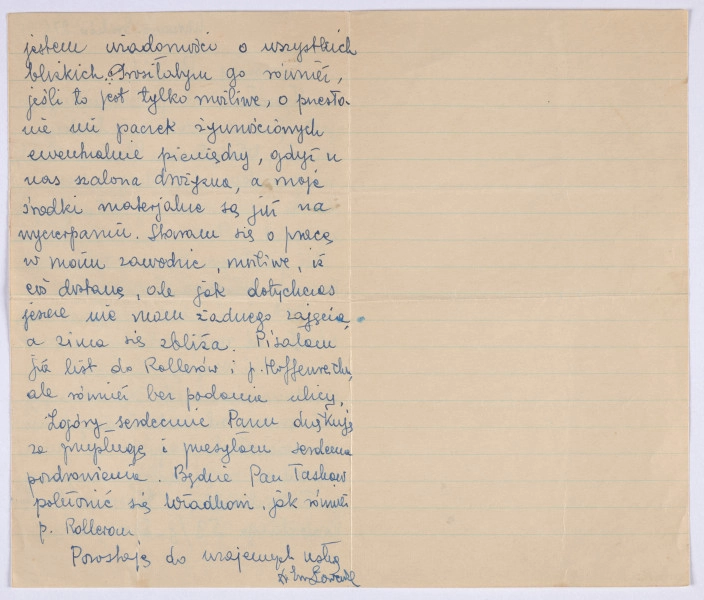 jestem wiadomości o wszystkich
bliskich. Prosiłabym go również,
jeśli to jest tylko możliwe, o przesła-
nie mi paczek żywnościowych
ewentualnie pieniędzy, gdyż u
nas szalona drożyzna, a moje
środki materjalne są już na
wyczerpaniu. Staram się o pracę
w moim zawodzie, możliwe, iż
coś dostanę, ale jak dotychczas
jeszcze nie mam żadnego zajęcia,
a zima się zbliża. Pisałam
już list do Rollerów i p.
ale również bez podania ulicy.
Zgóry serdecznie Panu dziękuję
za przysługę i przesyłam serdeczne
pozdrowienia. Będzie Pan łaskaw
pokłonić się Władkom, jak również
p. Rollerom.
Pozostaję do wzajemnych usług